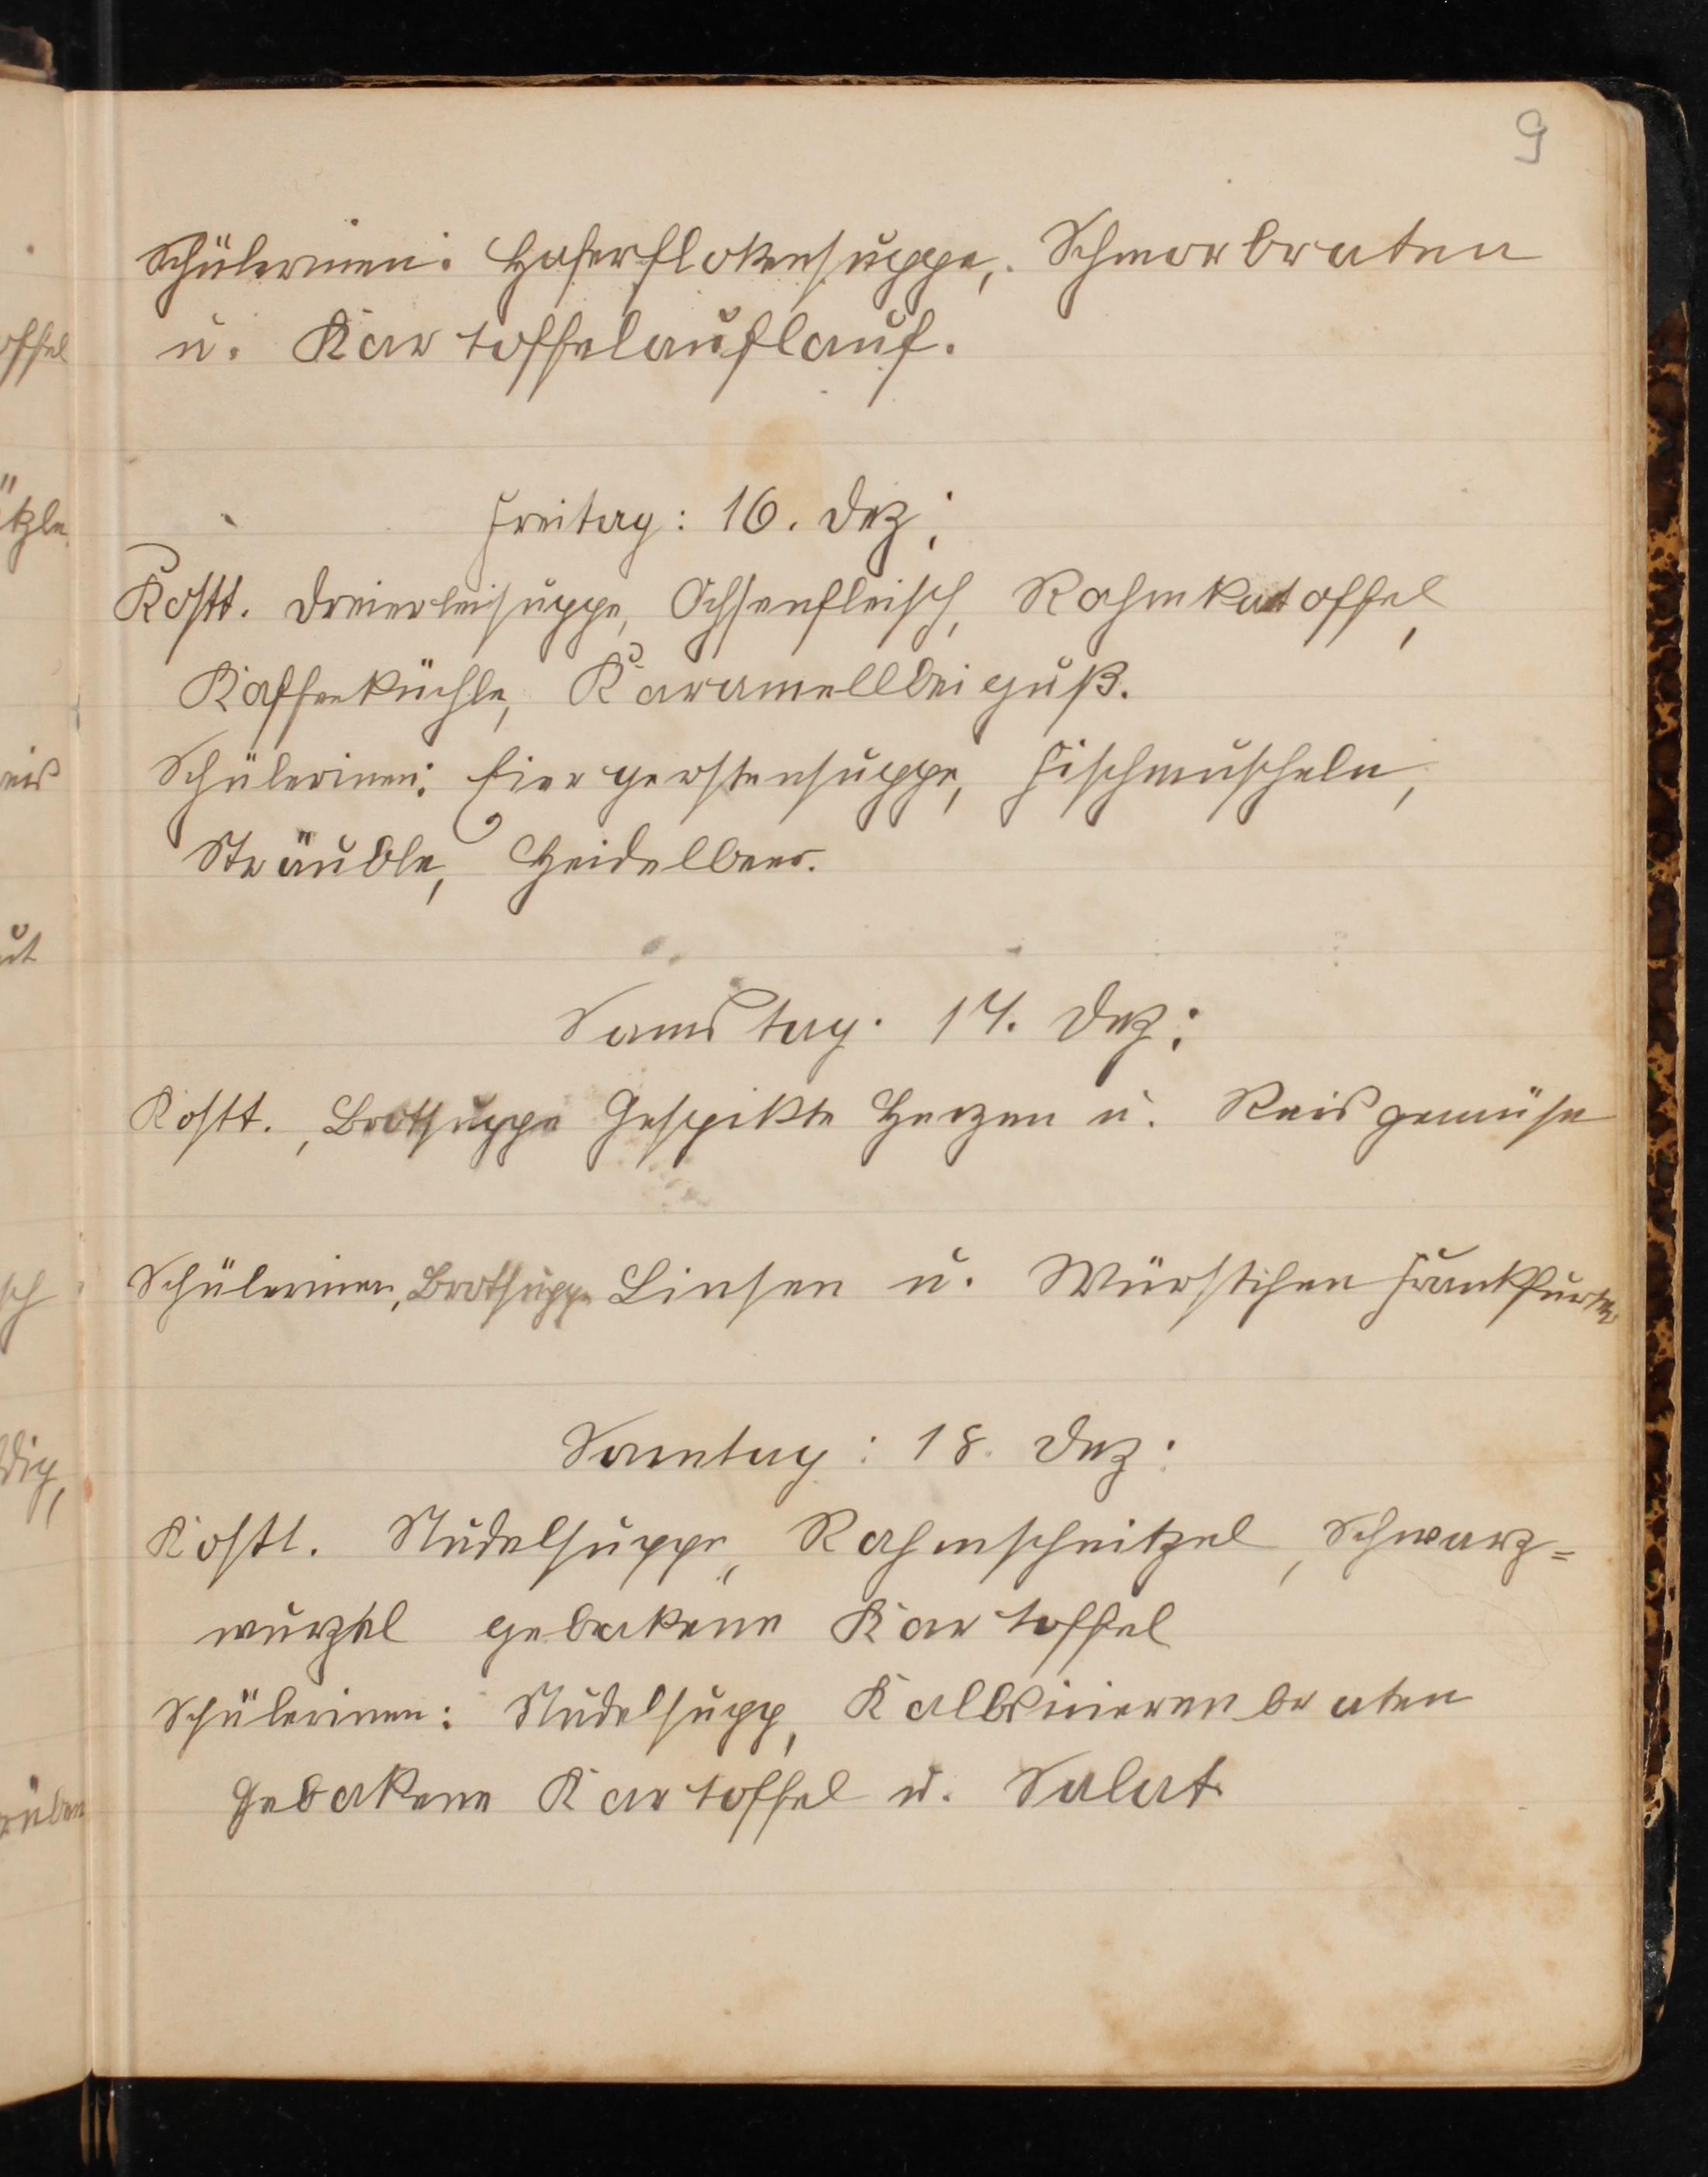 9
Schülerinen: Haferflokensuppe, Schmorbraten
u. Kartoffelauflauf.
Freitag: 16. Dez:
Kostt. Dreierleisuppe, Ochsenfleisch, Rahmkatoffel,
Kaffeeküchle, Karamellbeiguß.
Schülerinen: Eiergerstensuppe, Fischmuscheln,
Sträuble, Heidelbeer.
Samstag. 17. Dez:
Kostt., Brotsuppe Gespikte Herzen u. Reisgemüse
Schülerinen, Brotsuppe Linsen u. Würstchen Frankfurter
Sonntag: 18. Dez:
Kostt. Nudelsuppe, Rahmschnitzel, Schwarz=
wurzel gebakene Kartoffel
Schülerinen: Nudelsupp, Kalbsnierenbraten
Gebakene Kartoffel u. Salat